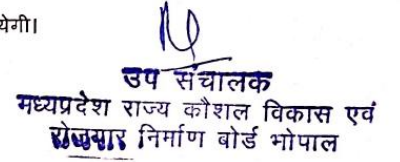 येगी।
उप संचालक
मध्यप्रदेश राज्य कौशल विकास एवं
रोजगार निर्माण बोर्ड भोपाल